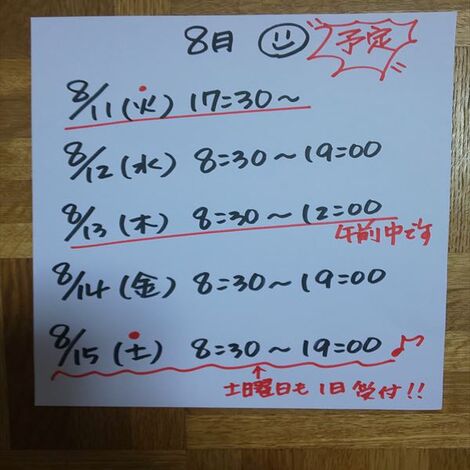 8月 予定
8/11(火) 17:30〜
8/12(水) 8:30〜19:00
8/13(木) 8:30〜12:00
午前中です
8/14(金) 8:30〜19:00
8/15(土) 8:30〜19:00
土曜日も1日受付!!